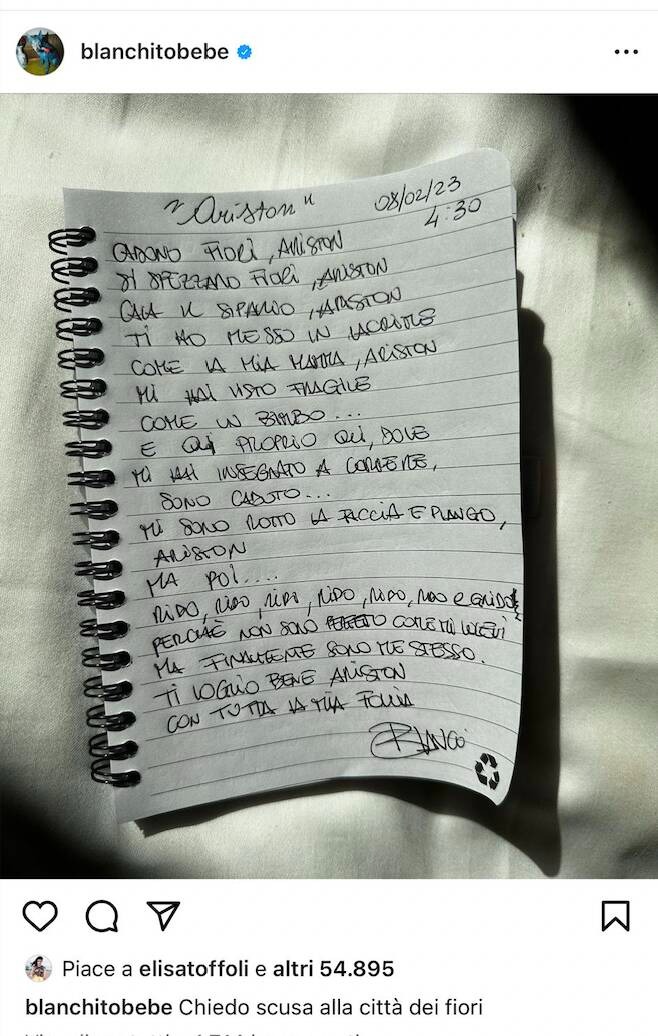 blanchitobebe
"Ariston" 08/02/23
4:30
CADONO FIORI, ARISTON
SI SPEZZANO FIORI, ARISTON
CALA IL SIPARIO, ARISTON
TI HO MESSO IN LACRIME
COME LA MIA MAMMA, ARISTON
MI HAI VISTO FRAGILE
COME UN BIMBO...
E QUI PROPRIO QUI, DOVE
MI HAI INSEGNATO A CORRERE,
SONO CADUTO...
MI SONO ROTTO LA FACCIA E PIANGO,
ARISTON
MA POI....
RIDO, RIDO, RIDO, RIDO, RIDO, RIDO E GRIDO
PERCHÈ NON SONO PERFETTO COME MI VOLEVI
MA FINALMENTE SONO ME STESSO.
TI VOGLIO BENE ARISTON
CON TUTTA LA MIA FOLLIA
BLANCO
Piace a elisatoffoli e altri 54.895
blanchitobebe Chiedo scusa alla città dei fiori